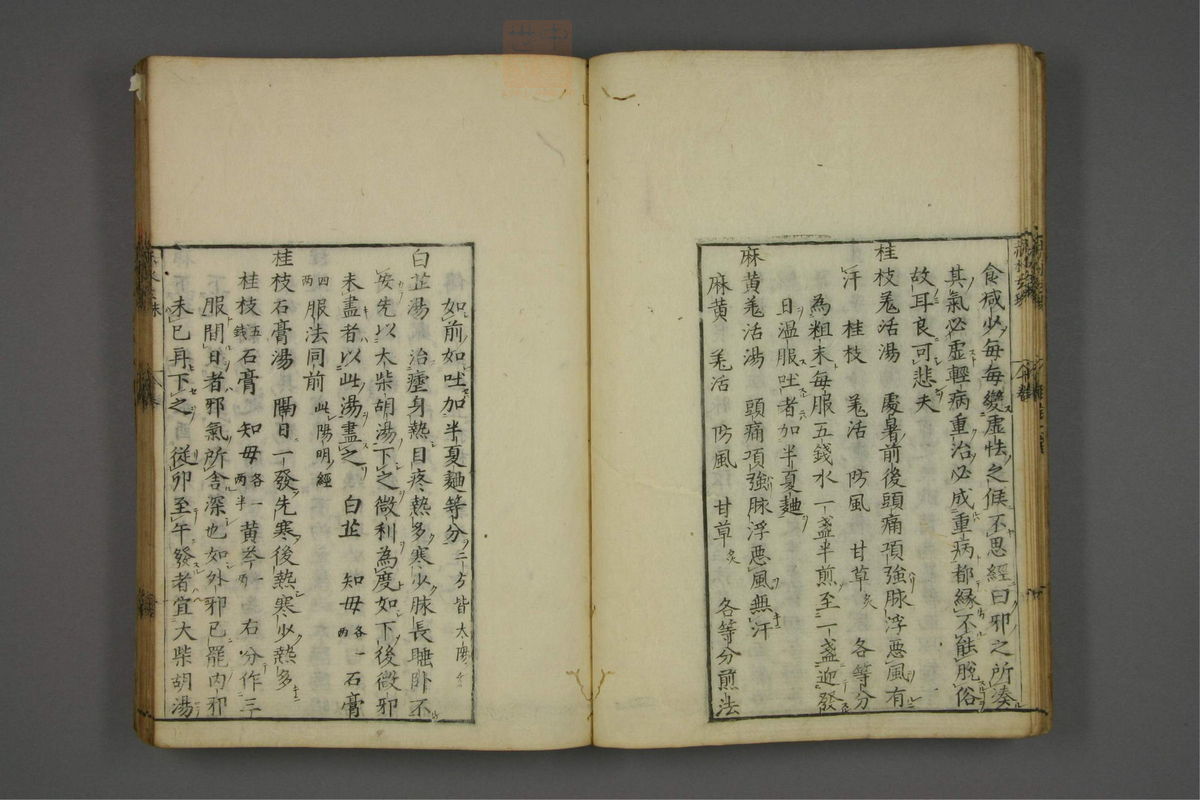 食减少每每變虛怯之候不思經曰邪之所湊
其氣必虛輕病重治必成重病都緣不能脫俗
故耳良可悲夫
桂枝羗活湯 處暑前後頭痛項強脉浮惡風有
汗 桂枝 羗活 防風 甘草炙 各等分
為粗末每服五錢水一盞半煎至一盞迎發
日温服吐者加半夏麯
麻黄羗活湯 頭痛項強脉浮惡風無汗
麻黄 羗活 防風 甘草炙 各等分煎法
如前如吐加半夏麯等分二方皆太陽
白芷湯 治瘧身熱目疼熱多寒少脉長睡卧不
安先以大柴胡湯下之微利為度如下後微邪
未盡者以此湯盡之 白芷 知母各一兩 石膏
四兩 服法同前此陽明經
桂枝石膏湯 隔日一發先寒後熱寒少熱多
桂枝五錢 石膏 知母各一兩半 黄芩一兩 右分作三
服間日者邪氣所舍深也如外邪已罷内邪
未已再下之 從卯至午發者宜大柴胡湯